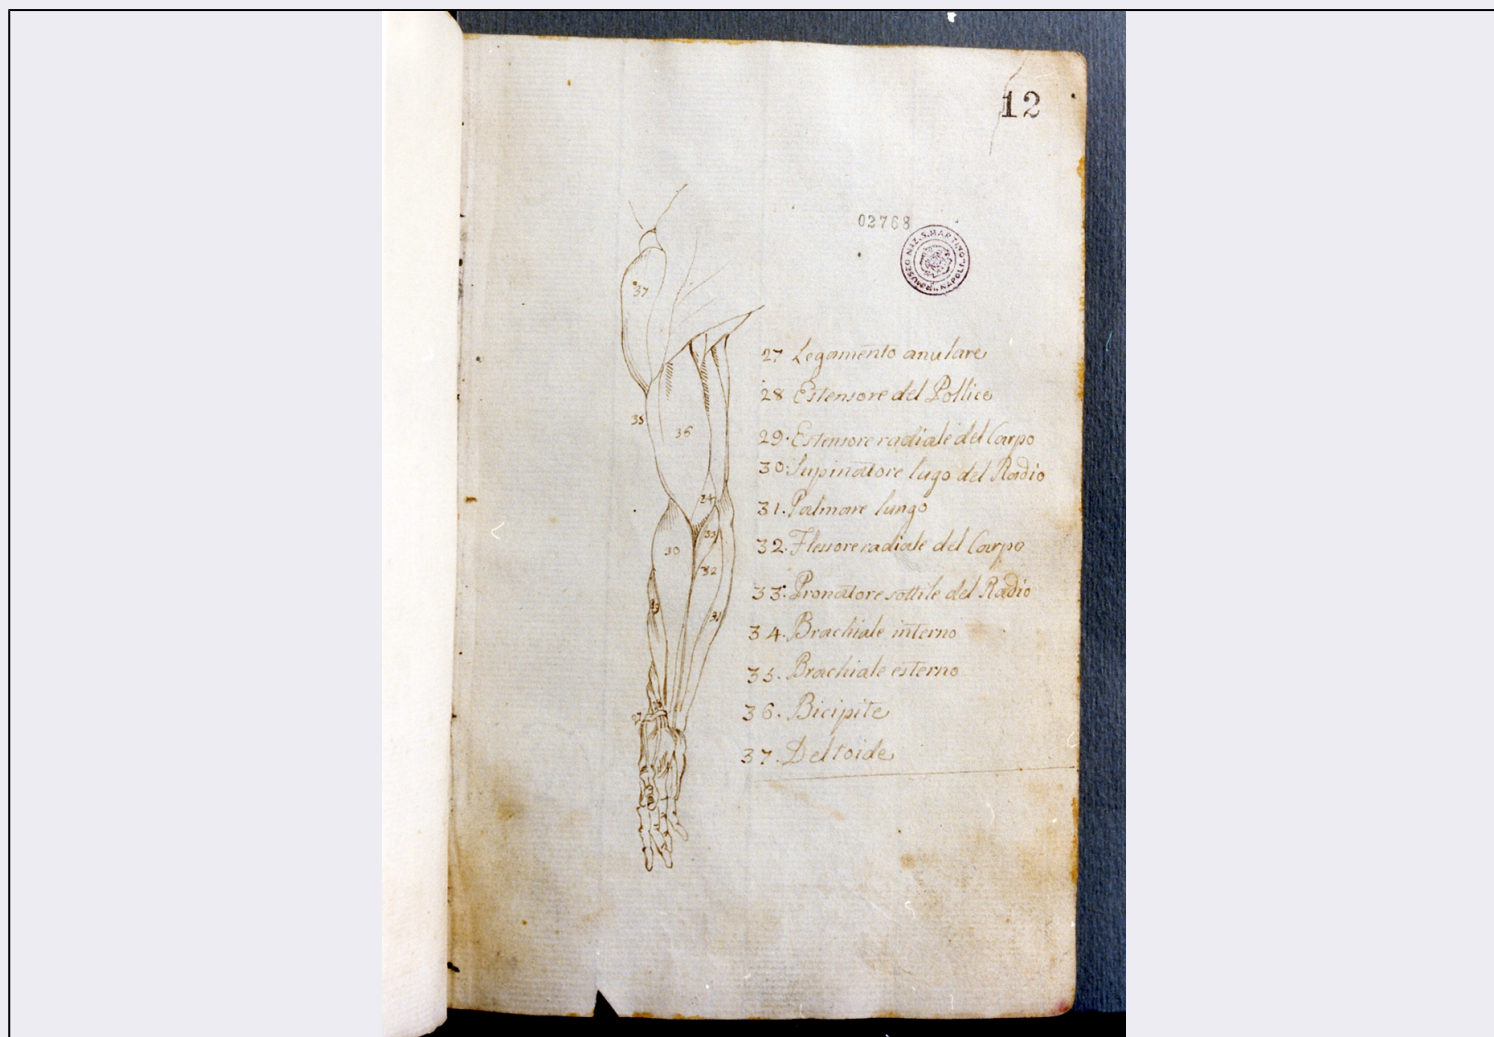 12
02768
MUSEO NAZ. S. MARTINO NAPOLI
27 Legamento anulare
28 Estensore del Pollice
29. Estensore radiale del Carpo
30. Supinatore lugo del Radio
31. Palmare lungo
32. Flessore radiale del Carpo
33. Pronatore sottile del Radio
34. Brachiale interno
35. Brachiale esterno
36. Bicipite
37. Deltoide
37
35
36
24
33
30
32
31
27